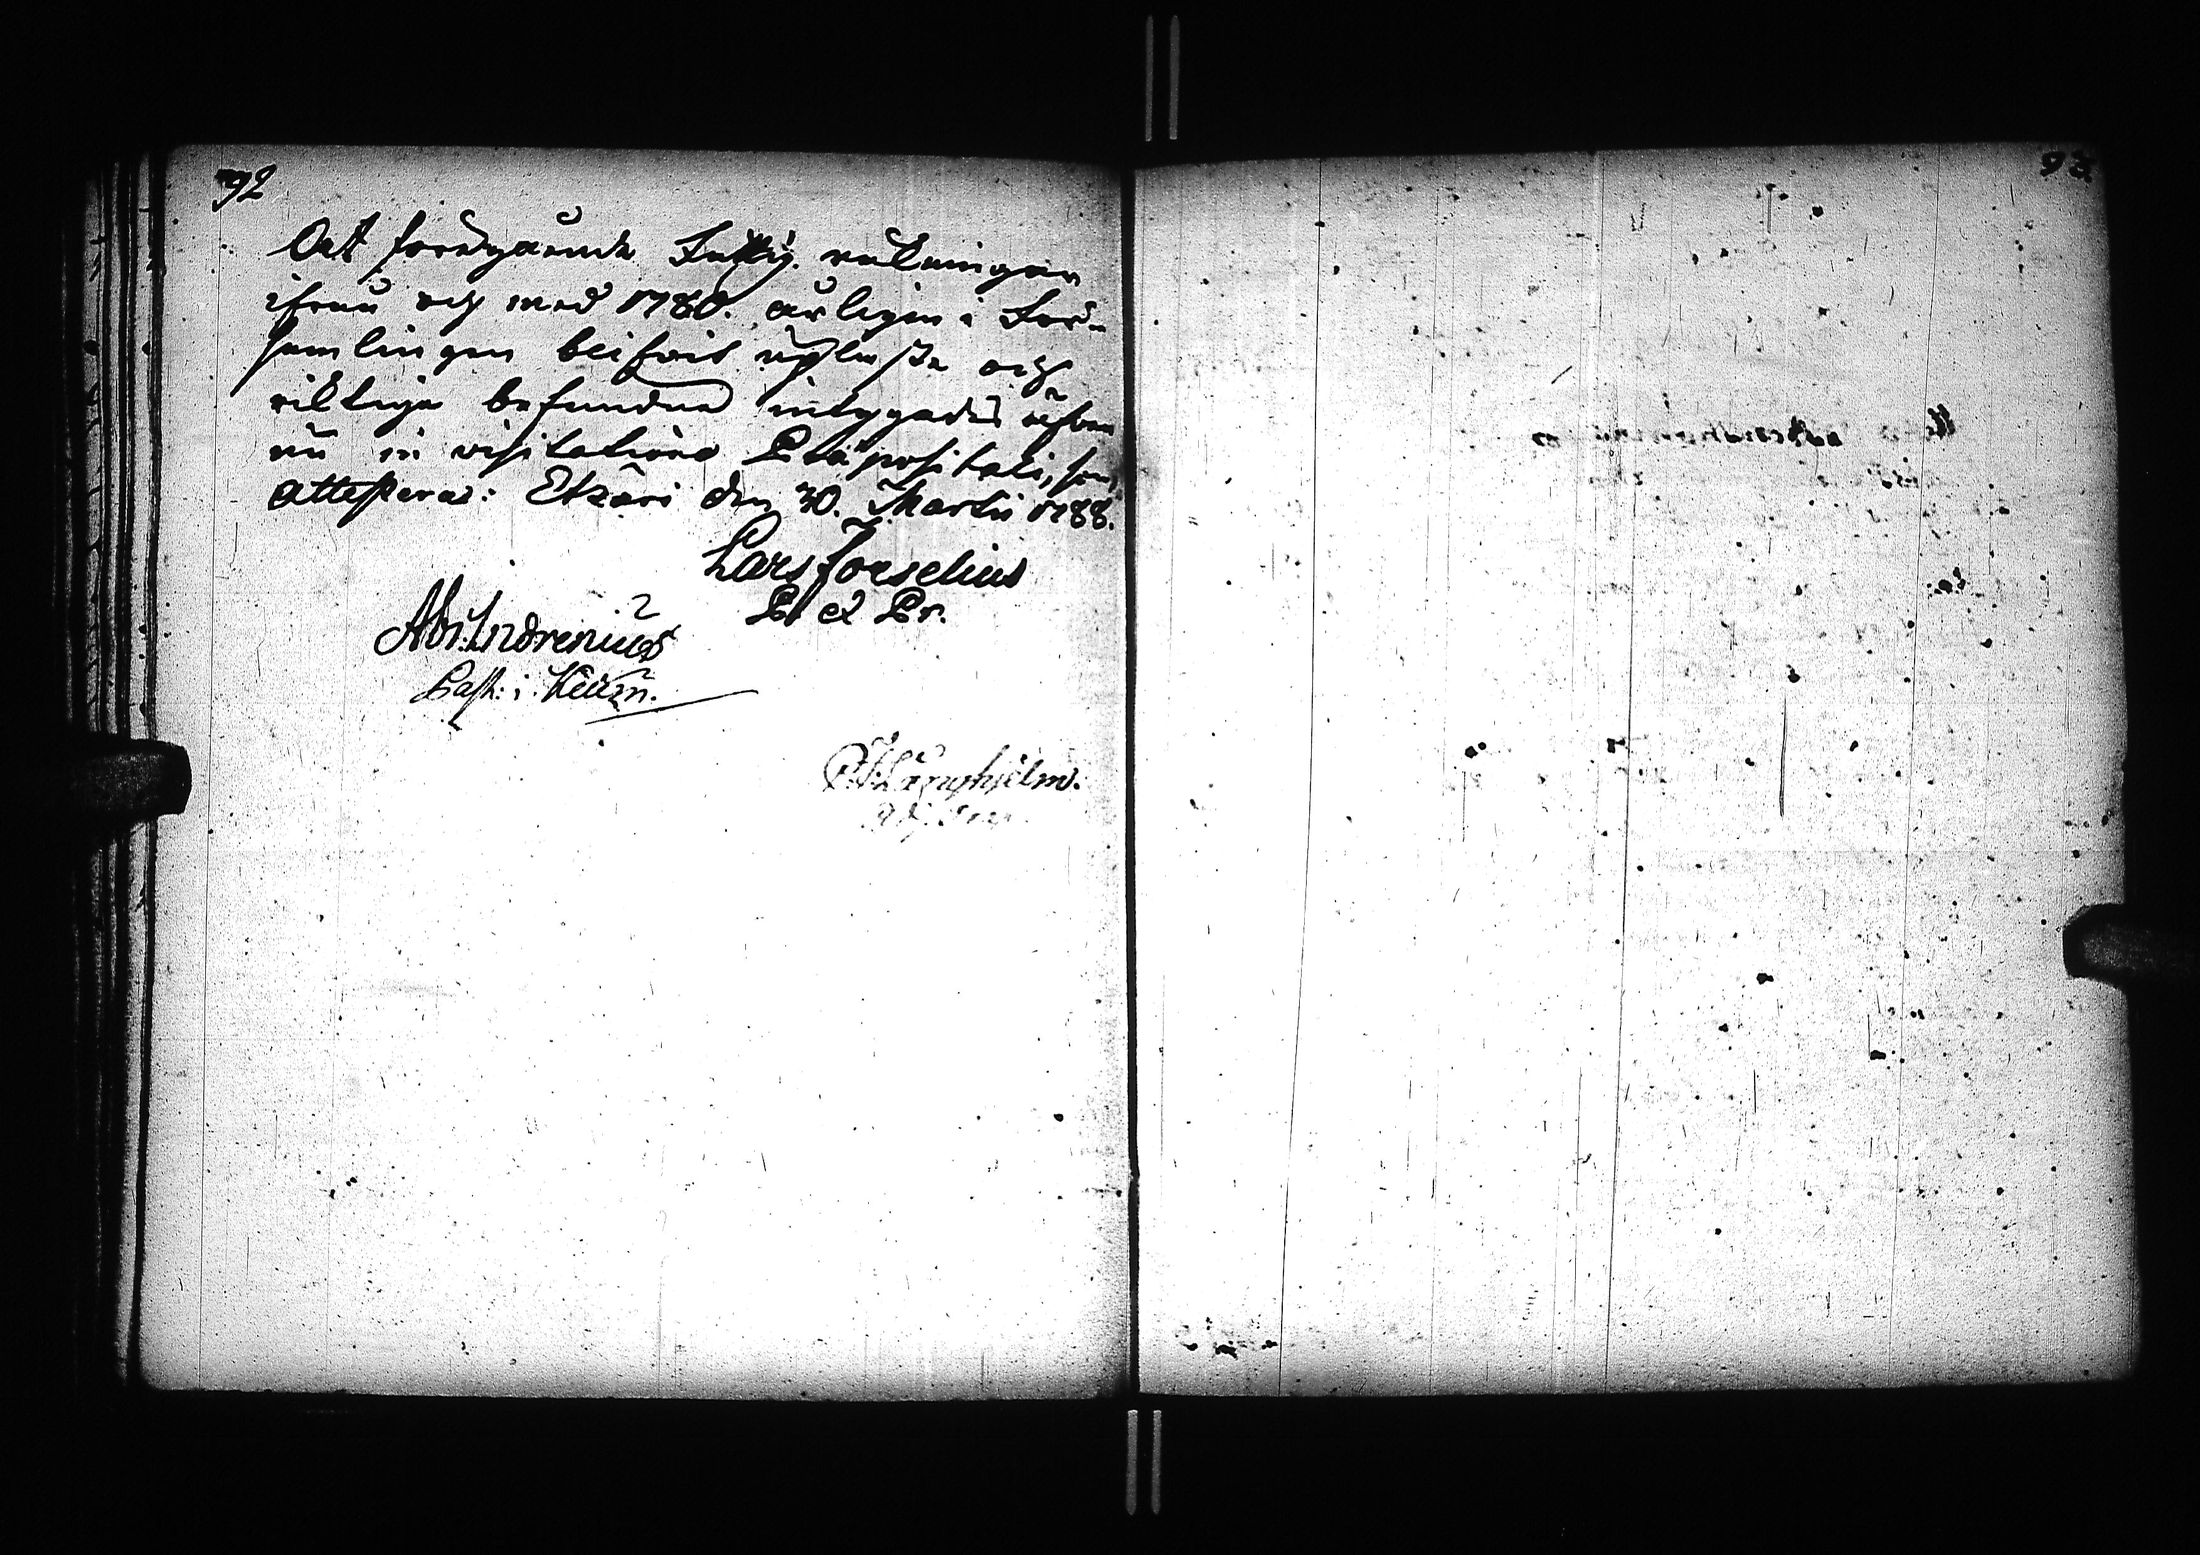 92
Att föregående Fattig. räkningar
ifrån och med 1780. årligen i För-
samlingen blifvit uplässte och
riktige befundne intygades äfven
nu in visitatione Præpositali, som
attesteras: Etzäri den 30. Martii 1788.
Lars Forselius
P. et Pr.
Abr. Indrenius
Past: i Keur.
93